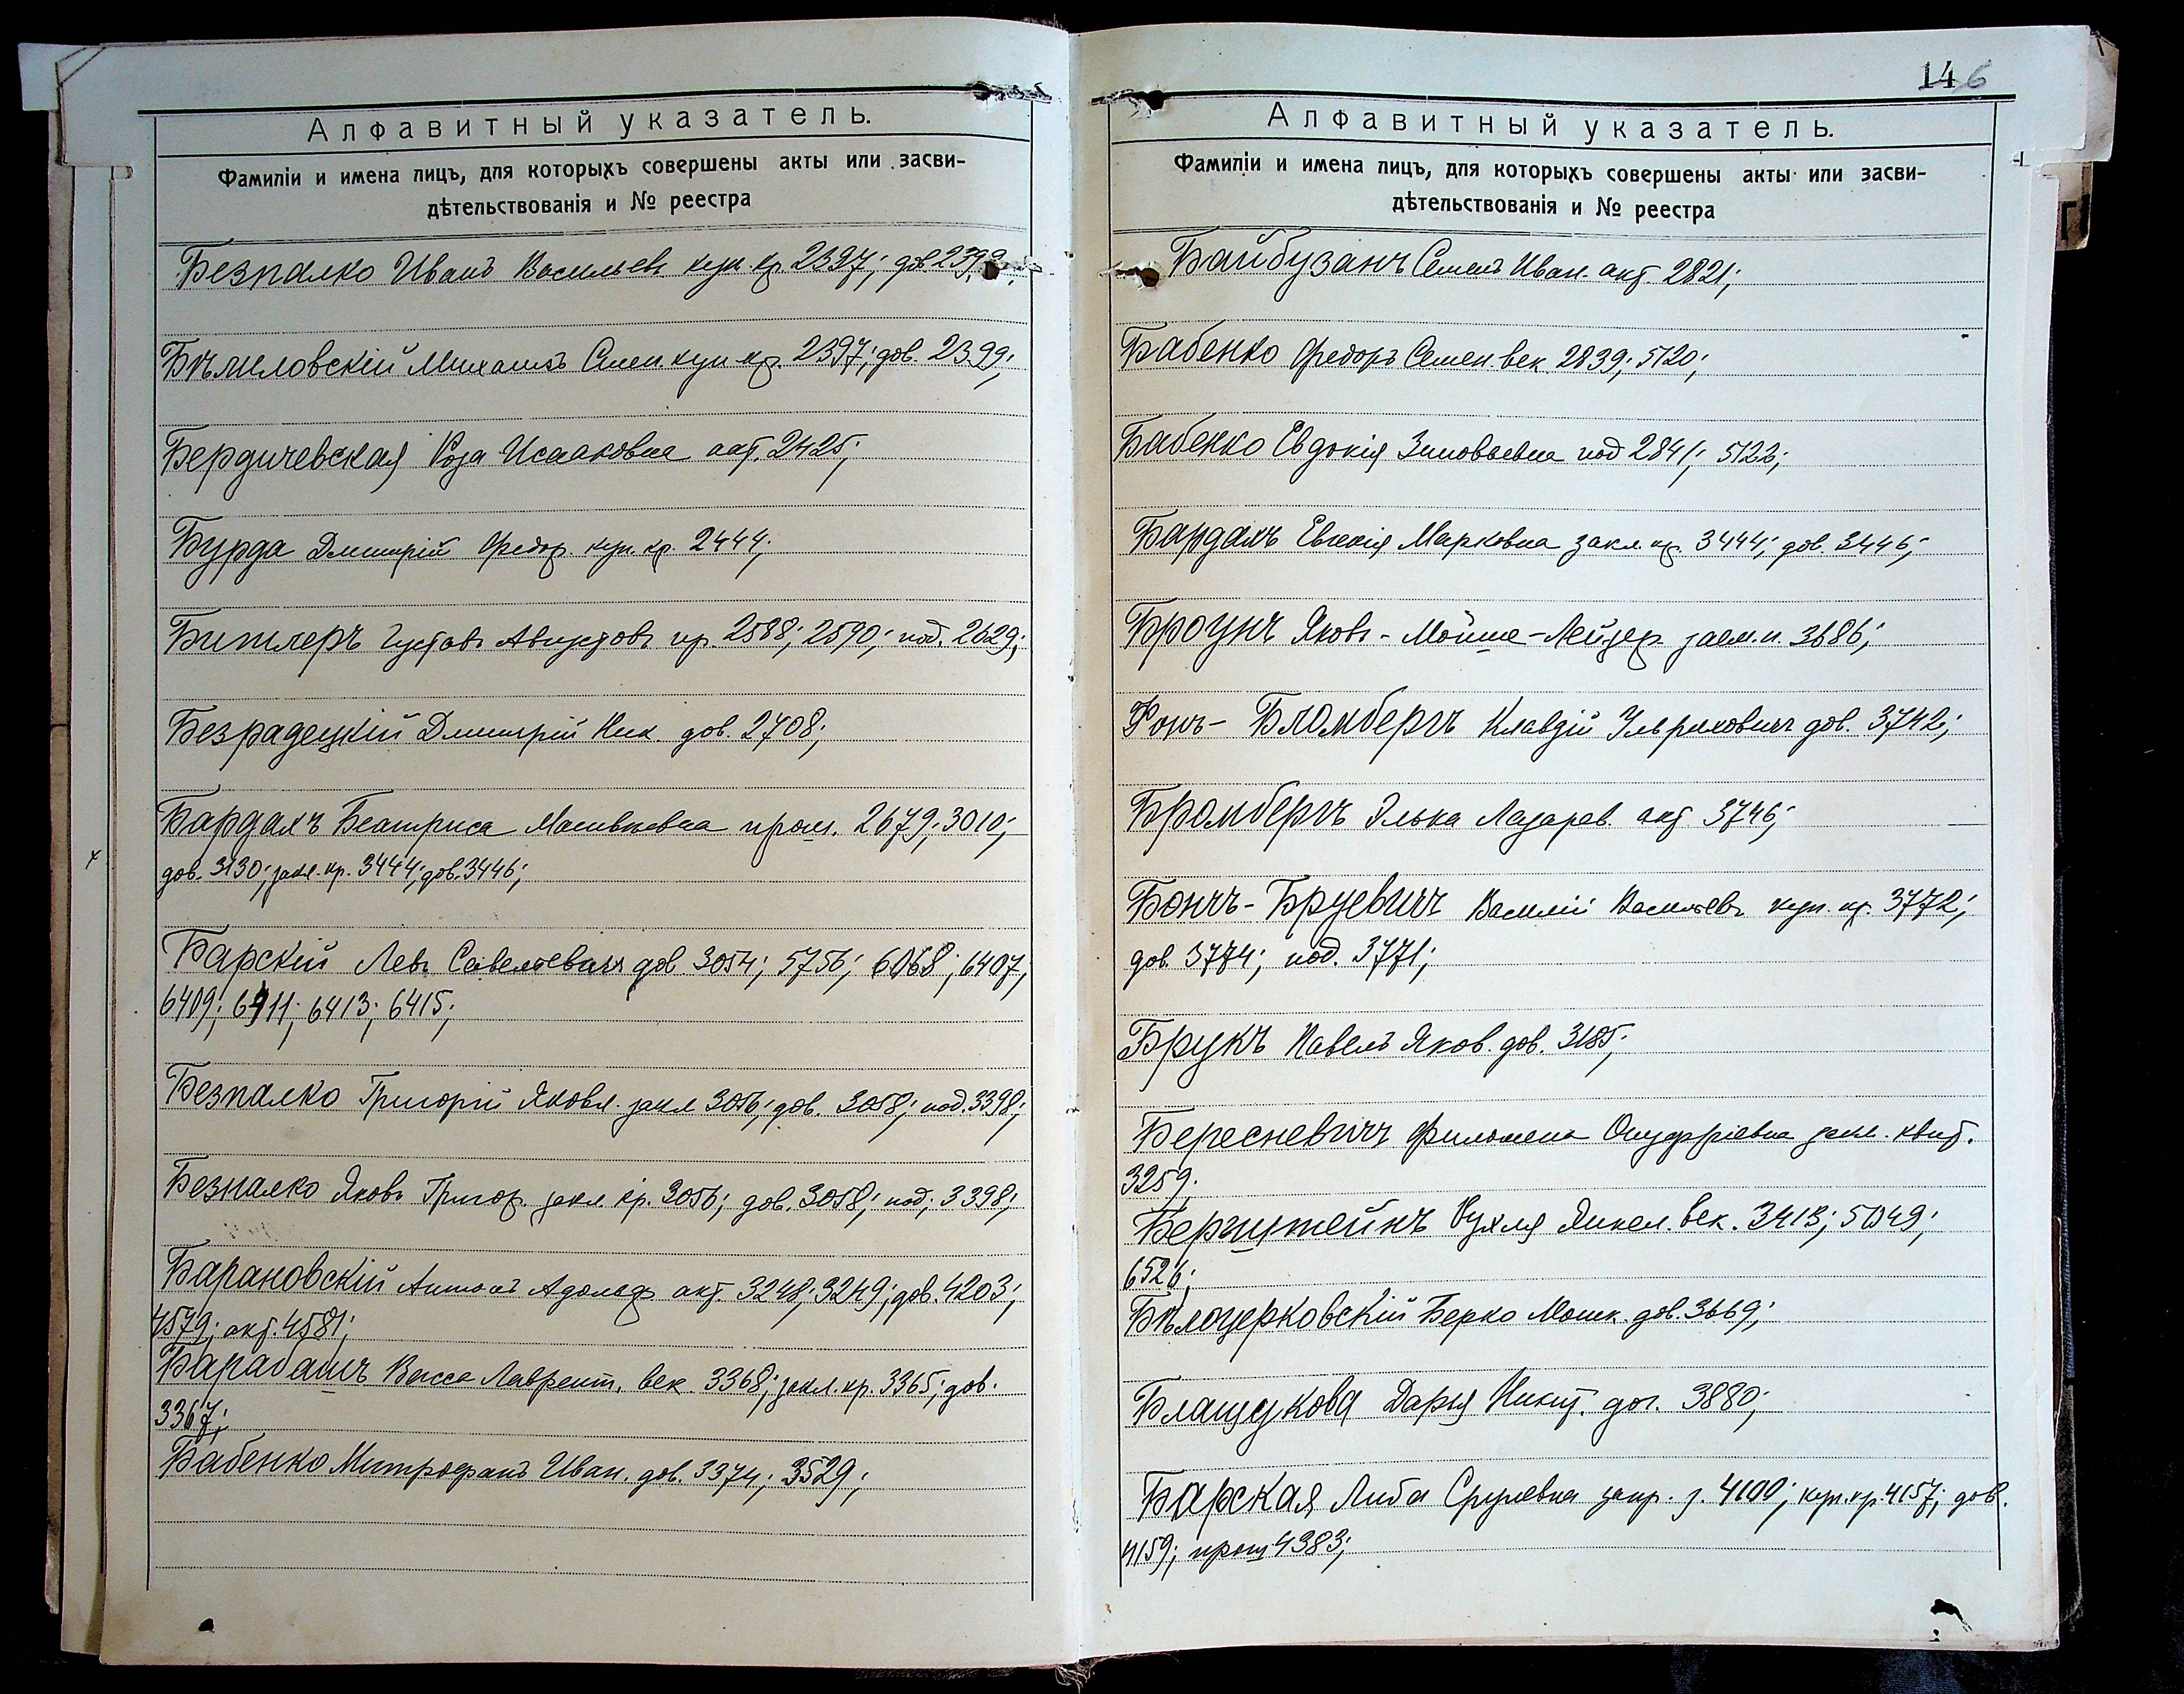 Алфавитный указатель.
Фамиліи и имена лицъ, для которыхъ совершены акты или засви-
дѣтельствованія и № реестра
Безпалко Иванъ Васильев. куп. кр. 2397; дов. 2399;
Бѣлиловскій Михаилъ Семен. куп. кр. 2397; дов. 2399;
Бердичевская Роза Исааковна акт. 2425;
Бурда Дмитрій Федор. куп. кр. 2444;
Битлеръ Густавъ Августовъ пр. 2588; 2590; под. 2629;
Безрадецкій Дмитрій Ник. дов. 2708;
Бардахъ Беатриса Матвѣевна прош. 2679; 3010;
дов. 3130; закл. кр. 3444; дов. 3446;
Барскій Левъ Савельевичъ дов 3054; 5756; 6068; 6407;
6409; 6411; 6413; 6415;
Безпалко Григорій Яковл. закл 3056; дов. 3058; под. 3398;
Безпалко Яковъ Григор. закл. кр. 3056; дов. 3058; под; 3398;
Барановскій Антонъ Адольф. акт. 3248; 3249; дов. 4203;
4579; акт. 4581;
Барабашъ Васса Лаврент. век. 3368; закл. кр. 3365; дов.
3367;
Бабенко Митрофанъ Иван. дов. 3374; 3529;
146
Алфавитный указатель.
Фамиліи и имена лицъ, для которыхъ совершены акты или засви-
дѣтельствованія и № реестра
Байбузанъ Семенъ Иван. акт. 2821;
Бабенко Федоръ Семен. век. 2839; 5120;
Бабенко Евдокія Зиновьевна под 2841; 5122;
Бардахъ Евгенія Марковна закл. кр. 3444; дов. 3446;
Броунъ Яковъ-Мойше-Лейзер. заем. п. 3686;
Фонъ-Бломбергъ Клавдій Ульриховичъ дов. 3742;
Бромбергъ Элька Лазарев. акт 3746;
Бончъ-Бруевичъ Василій Васильевъ куп. кр. 3772;
дов. 3774; под. 3771;
Брукъ Павелъ Яков. дов. 3185;
Бересневичъ Филомена Онуфріевна закл. квит.
3259;
Бергштейнъ Рухля Янкел. век. 3413; 5049;
6526;
Бѣлоцерковскій Берко Мошк. дов. 3669;
Блащукова Дарья Никит. дог. 3880;
Барская Либа Срулевна запр. з. 4100; куп. кр. 4157; дов.
4159; прош 4383;